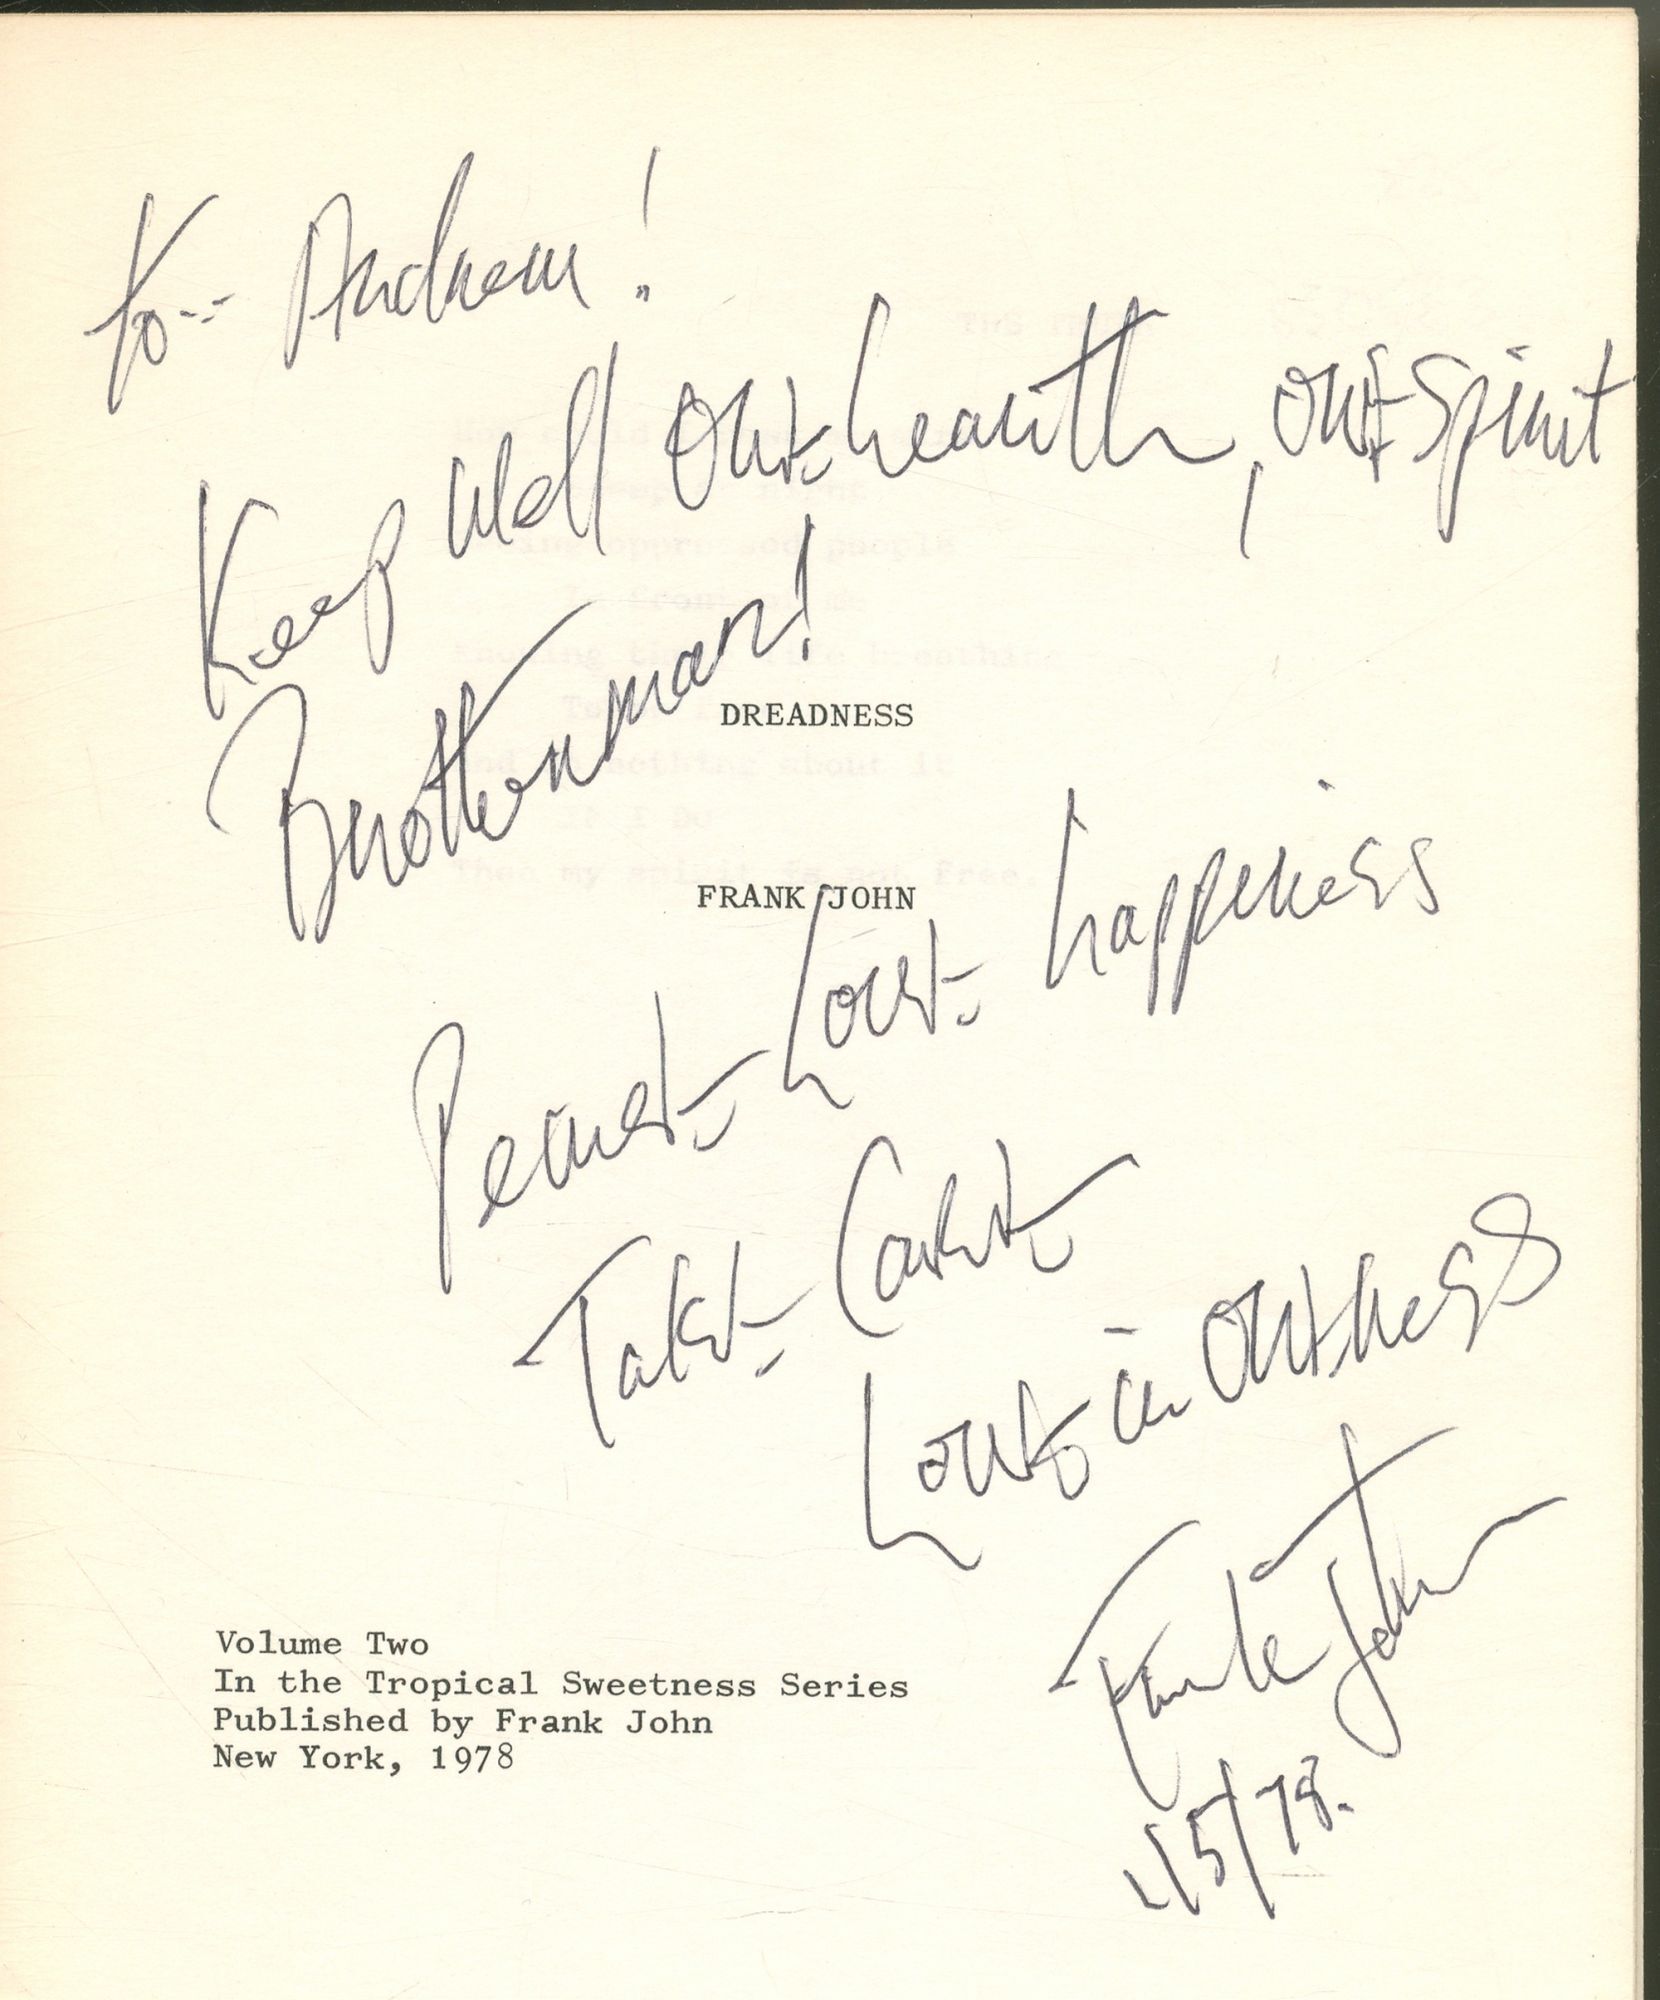 To-- Andrew!
Keep well One hearth, One spirit
Brotherman!
DREADNESS
FRANK JOHN
Peace- Love- happiness
Take- Care-
Love in Oneness
Frank John
4/5/78.
Volume Two
In the Tropical Sweetness Series
Published by Frank John
New York, 1978